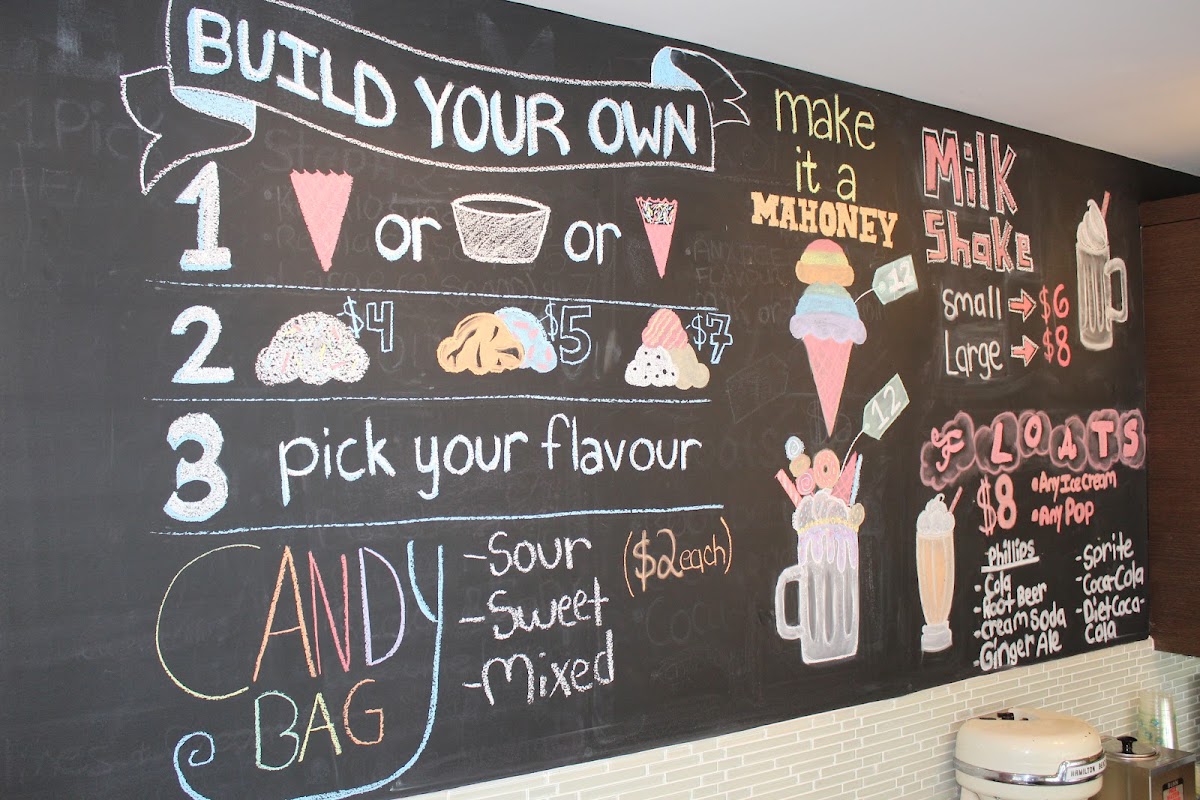 BUILD YOUR OWN
1
or
or
2
$4
$5
$7
3
pick your flavour
CANDY
BAG
-Sour
($2each)
-Sweet
-Mixed
make
it a
MAHONEY
12
12
Milk
Shake
Small → $6
Large → $8
FLOATS
$8
•Any Ice cream
•Any Pop
Phillips
-Cola
-Root Beer
-cream Soda
-Ginger Ale
-Sprite
-Coca-Cola
-Diet Coca-
Cola